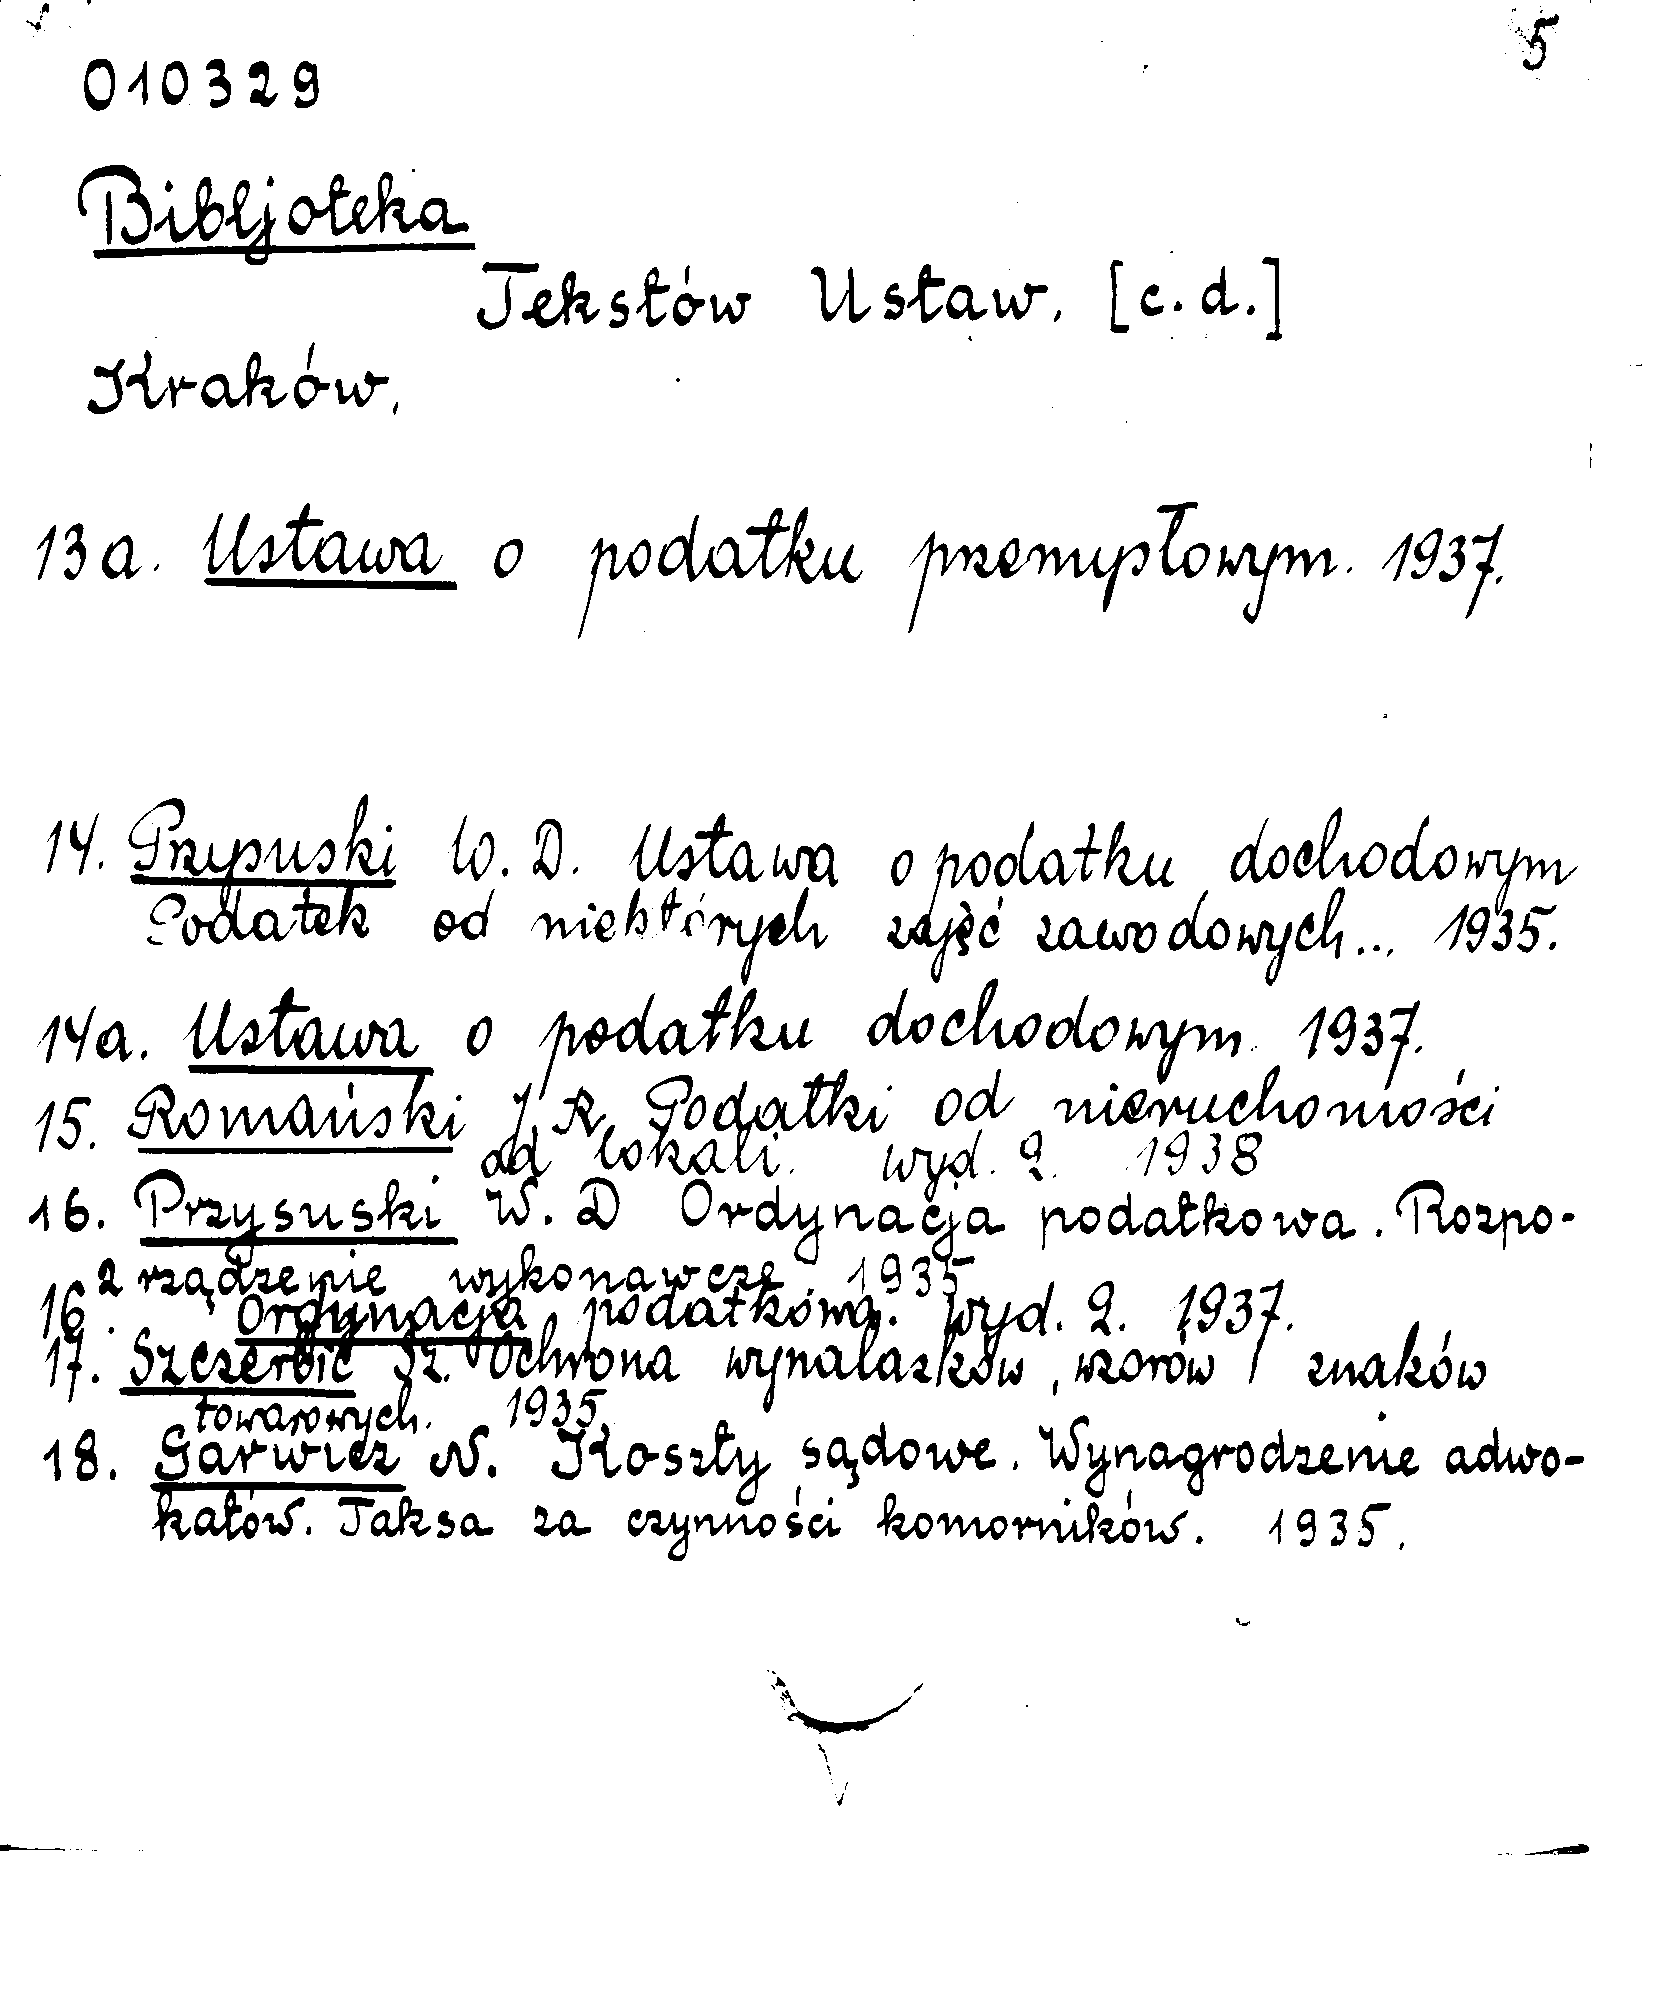 5
010329
Bibljoteka
Tekstów Ustaw. [c.d.]
Kraków.
13a. Ustawa o podatku przemysłowym. 1937.
14. Przypuski W. D. Ustawa o podatku dochodowym
Podatek od niektórych zajęć zawodowych... 1935.
14a. Ustawa o podatku dochodowym. 1937.
15. Romański J. R. Podatki od nieruchomości
od lokali. wyd. 2. 1938
16. Przysuski W. D Ordynacja podatkowa. Rozpo-
rządzenie wykonawcze. 1935
16 2. Ordynacja podatkowa. Wyd. 2. 1937.
17. Szczerbic Sz. Ochrona wynalazków, wzorów i znaków
towarowych. 1935.
18. Garwicz N. Koszty sądowe. Wynagrodzenie adwo-
katów. Taksa za czynności komorników. 1935.